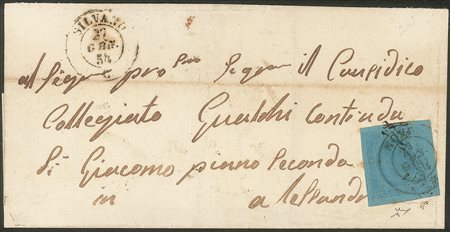 SILVANO
27
GEN.
54
al Sigr pro Sigr il Causidico
Collegiato Gualchi Contrada
di Giacomo piano Secondo
in alessandr